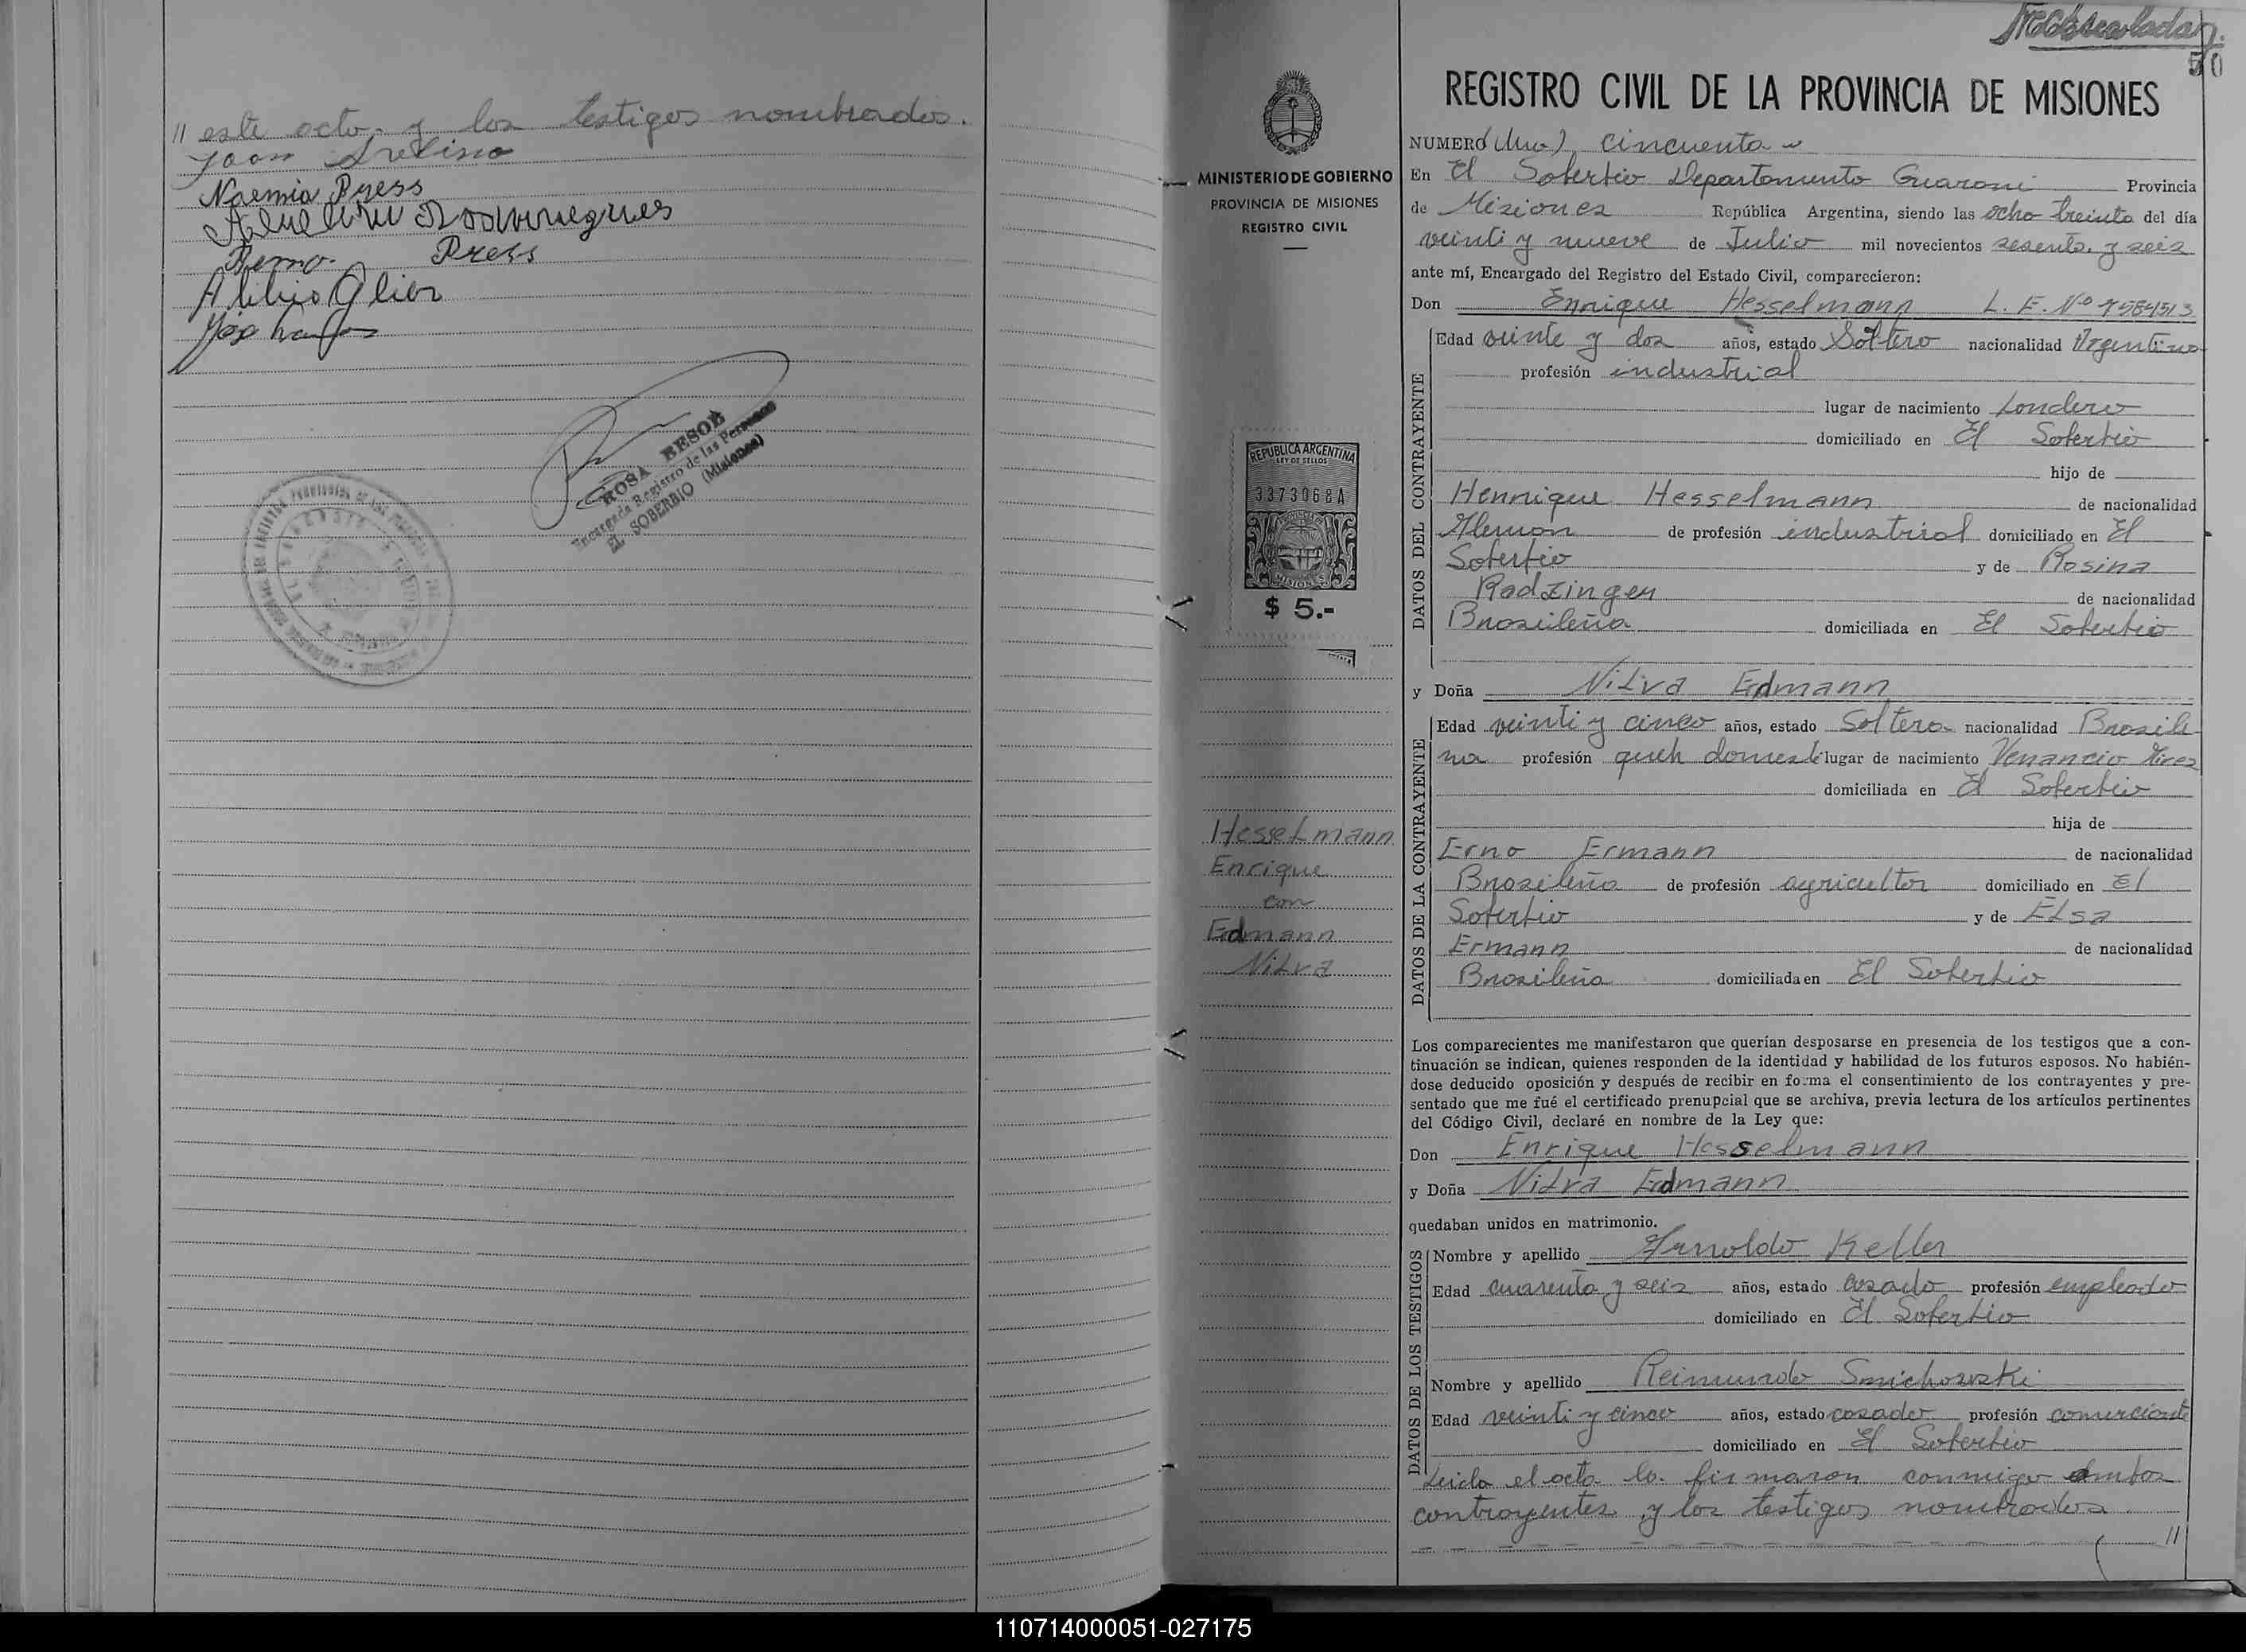 // este acto y los testigos nombrados.
Joan Avelino
Naemia Press
Press
ROSA BESOL
Encargada Registro de las Personas
EL SOBERBIO (Misiones)
50
REGISTRO CIVIL DE LA PROVINCIA DE MISIONES
MINISTERIO DE GOBIERNO
PROVINCIA DE MISIONES
REGISTRO CIVIL
REPUBLICA ARGENTINA
LEY DE SELLOS
3373068A
MISIONES
$ 5.-
Hesselmann
Enrique
con
Erdmann
Nilva
NUMERO cincuenta
En El Soberbio Departamento Guarani Provincia
de Misiones República Argentina, siendo las ocho treinta del día
veinti y nueve de Julio mil novecientos sesenta y seis
ante mí, Encargado del Registro del Estado Civil, comparecieron:
Don Enrique Hesselmann L. E. Nº 7584513
DATOS DEL CONTRAYENTE
Edad veinte y dos años, estado Soltero nacionalidad Argentino
profesión industrial
lugar de nacimiento Londero
domiciliado en El Soberbio
hijo de
Henrique Hesselmann de nacionalidad
Aleman de profesión industrial domiciliado en El
Soberbio y de Rosina
Radzinger de nacionalidad
Brasileña domiciliada en El Soberbio
y Doña Nilva Erdmann
DATOS DE LA CONTRAYENTE
Edad veinti y cinco años, estado Soltera nacionalidad Brasile
ña profesión queh domest lugar de nacimiento Venancio Aires
domiciliada en El Soberbio
hija de
Erno Ermann de nacionalidad
Brasileño de profesión agricultor domiciliado en El
Soberbio y de Elsa
Ermann de nacionalidad
Brasileña domiciliada en El Soberbio
Los comparecientes me manifestaron que querían desposarse en presencia de los testigos que a con-
tinuación se indican, quienes responden de la identidad y habilidad de los futuros esposos. No habién-
dose deducido oposición y después de recibir en forma el consentimiento de los contrayentes y pre-
sentado que me fué el certificado prenupcial que se archiva, previa lectura de los artículos pertinentes
del Código Civil, declaré en nombre de la Ley que:
Don Enrique Hesselmann
y Doña Nilva Erdmann
quedaban unidos en matrimonio.
DATOS DE LOS TESTIGOS
Nombre y apellido Arnoldo Keller
Edad cuarenta y seis años, estado casado profesión empleado
domiciliado en El Soberbio
Nombre y apellido Reimundo Smichowski
Edad veinti y cinco años, estado casado profesión comerciante
domiciliado en El Soberbio
Leida el acta la firmaron conmigo ambos
contrayentes y los testigos nombrados.
//
110714000051-027175